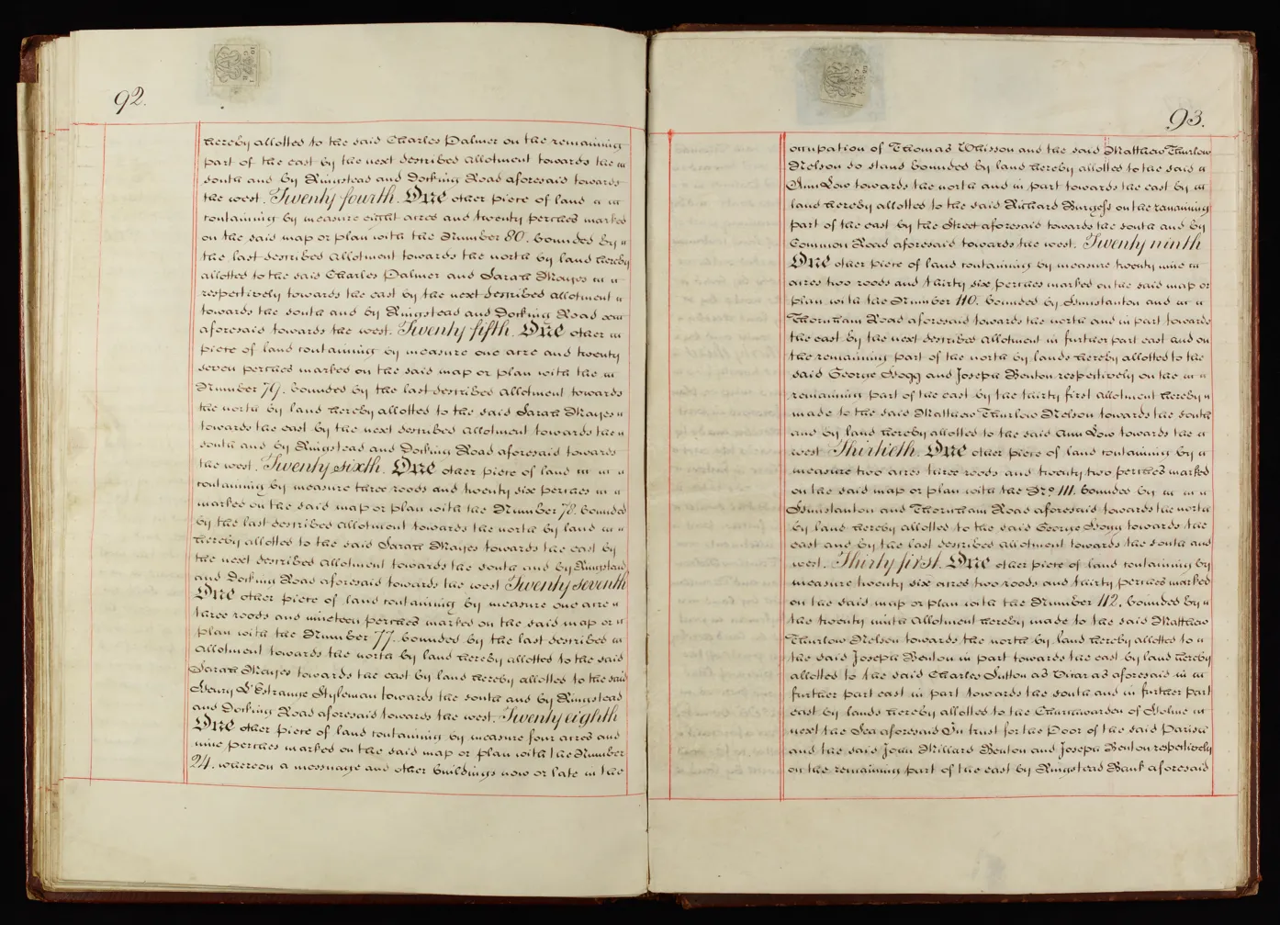 92.
hereby allotted to the said Charles Palmer on the remaining
part of the east by the next described allotment towards the
south and by Ringstead and Docking Road aforesaid towards
the west. Twenty fourth. One other piece of land a
containing by measure eight acres and twenty perches marked
on the said map or plan with the Number 80. bounded by
the last described allotment towards the north by land hereby
allotted to the said Charles Palmer and Sarah Mayes
respectively towards the east by the next described allotment
towards the south and by Ringstead and Docking Road
aforesaid towards the west. Twenty fifth. One other
piece of land containing by measure one acre and twenty
seven perches marked on the said map or plan with the
Number 79. bounded by the last described allotment towards
the north by land hereby allotted to the said Sarah Mayes
towards the east by the next described allotment towards the
south and by Ringstead and Docking Road aforesaid towards
the west. Twenty sixth. One other piece of land
containing by measure three roods and twenty six perches
marked on the said map or plan with the Number 78. bounded
by the last described allotment towards the north by land
hereby allotted to the said Sarah Mayes towards the east by
the next described allotment towards the south and by Ringstead
and Docking Road aforesaid towards the west Twenty seventh
One other piece of land containing by measure one acre
three roods and nineteen perches marked on the said map or
plan with the Number 77. bounded by the last described
allotment towards the north by land hereby allotted to the said
Sarah Mayes towards the east by land hereby allotted to the said
Henry L'Estrange Styleman towards the south and by Ringstead
and Docking Road aforesaid towards the west. Twenty eighth
One other piece of land containing by measure four acres and
nine perches marked on the said map or plan with the Number
24. whereon a messuage and other buildings now or late in the
93.
occupation of Thomas Whisson and the said Matthew Thurlow
Nelson do stand bounded by land hereby allotted to the said
Ann Low towards the north and in part towards the east by
land hereby allotted to the said Richard Burgess on the remaining
part of the east by the Street aforesaid towards the south and by
Common Road aforesaid towards the west. Twenty ninth
One other piece of land containing by measure twenty nine
acres two roods and thirty six perches marked on the said map or
plan with the Number 110. bounded by Hunstanton and
Thornham Road aforesaid towards the north and in part towards
the east by the next described allotment in further part east and on
the remaining part of the north by lands hereby allotted to the
said George Hogg and Joseph Benton respectively on the
remaining part of the east by the thirty first allotment hereby
made to the said Matthew Thurlow Nelson towards the south
and by land hereby allotted to the said Ann Low towards the
west Thirtieth. One other piece of land containing by
measure two acres three roods and twenty two perches marked
on the said map or plan with the No. 111. bounded by
Hunstanton and Thornham Road aforesaid towards the north
by land hereby allotted to the said George Hogg towards the
east and by the last described allotment towards the south and
west. Thirty first. One other piece of land containing by
measure twenty six acres two roods and thirty perches marked
on the said map or plan with the Number 112. bounded by
the twenty ninth allotment hereby made to the said Matthew
Thurlow Nelson towards the north by land hereby allotted to
the said Joseph Benton in part towards the east by land hereby
allotted to the said Charles Sutton as Vicar as aforesaid in
further part east in part towards the south and in further part
east by lands hereby allotted to the Churchwarden of Holme
next the Sea aforesaid In trust for the Poor of the said Parish
and the said John Millard Benton and Joseph Benton respectively
on the remaining part of the east by Ringstead Bank aforesaid